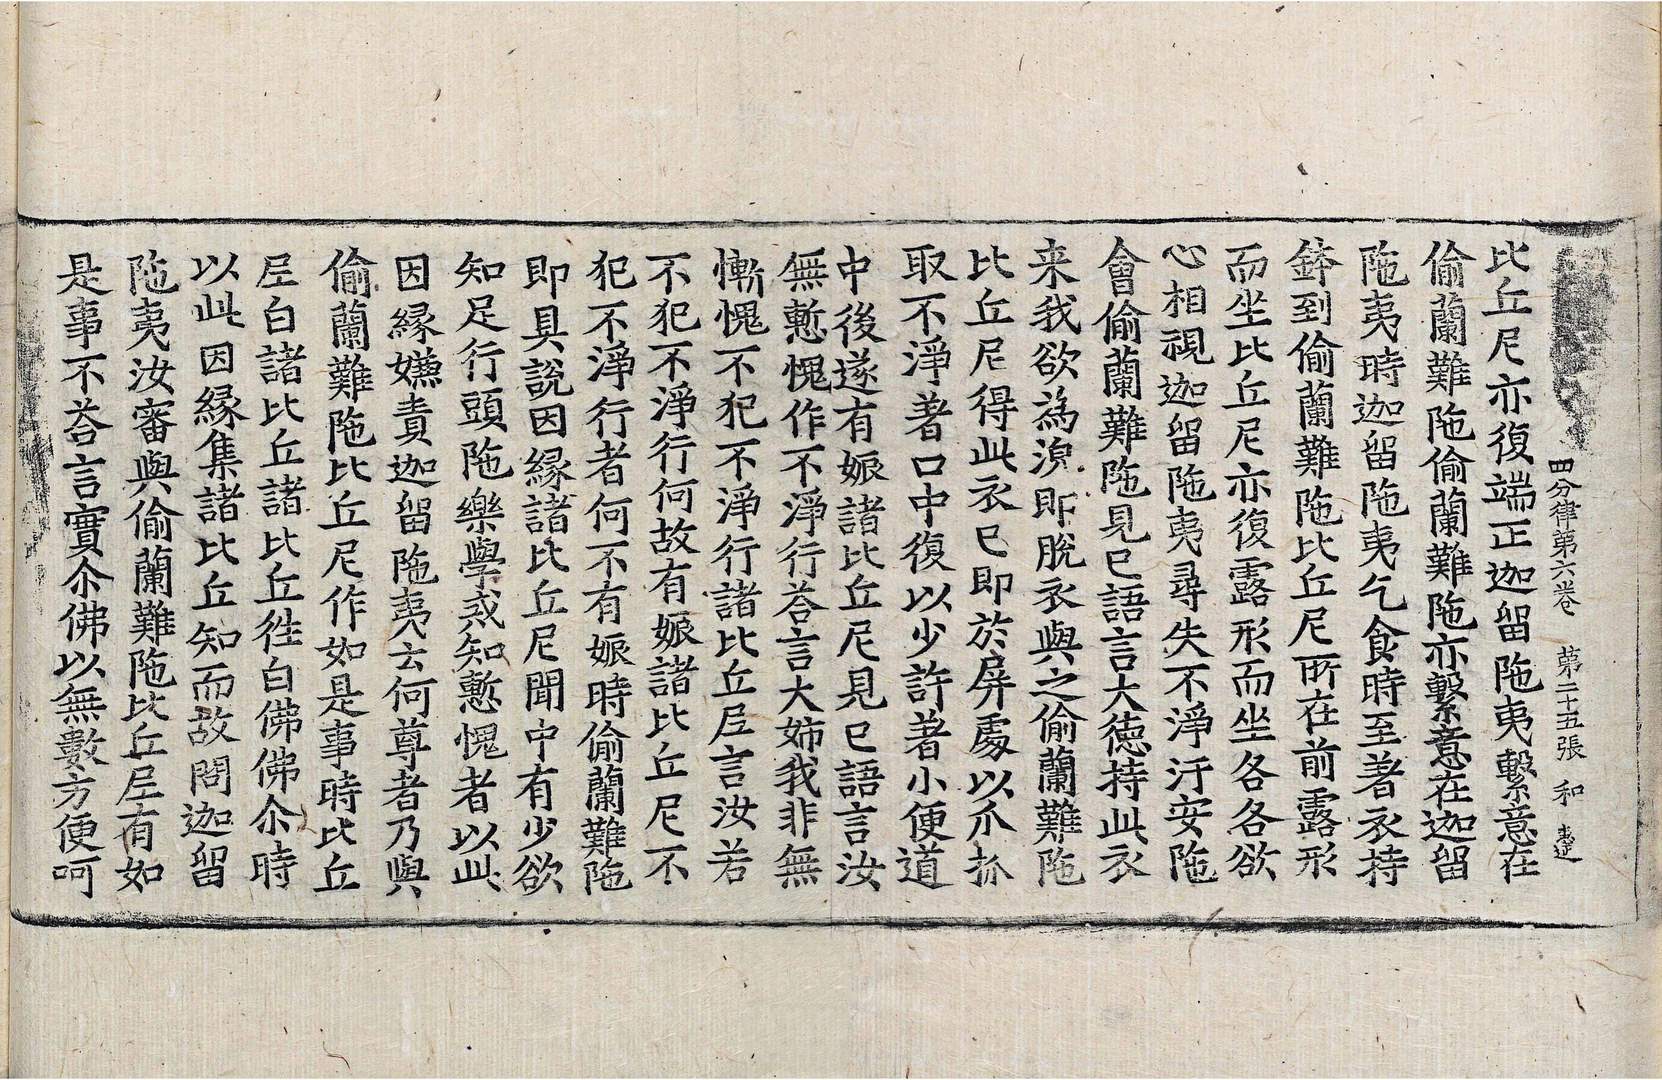 四分律第六卷 第二十五張 和
比丘尼亦復端正迦留陁夷繫意在
偷蘭難陁偷蘭難陁亦繫意在迦留
陁夷時迦留陁夷乞食時至著衣持
鉢到偷蘭難陁比丘尼所在前露形
而坐比丘尼亦復露形而坐各各欲
心相視迦留陁夷尋失不淨汙安陁
會偷蘭難陁見已語言大德持此衣
来我欲為浣即脫衣與之偷蘭難陁
比丘尼得此衣已即於屏處以爪抓
取不淨著口中復以少許著小便道
中後遂有娠諸比丘尼見已語言汝
無慙愧作不淨行荅言大姊我非無
慚愧不犯不淨行諸比丘尼言汝若
不犯不淨行何故有娠諸比丘尼不
犯不淨行者何不有娠時偷蘭難陁
即具說因緣諸比丘尼聞中有少欲
知足行頭陁樂學戒知慙愧者以此
因緣嫌責迦留陁夷云何尊者乃與
偷蘭難陁比丘尼作如是事時比丘
尼白諸比丘諸比丘徃白佛佛尒時
以此因緣集諸比丘知而故問迦留
陁夷汝審與偷蘭難陁比丘尼有如
是事不荅言實尒佛以無數方便呵